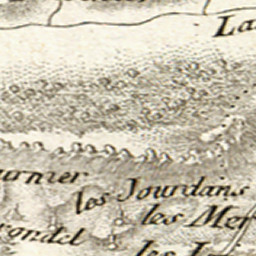 La
urnier
les Jourdans
les Me
rondel
les